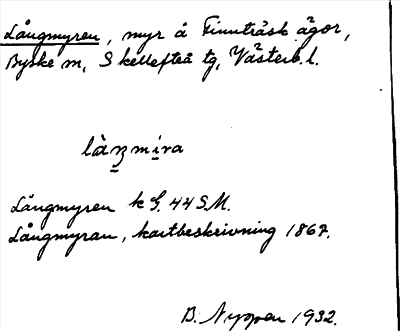 Långmyren, myr å Finnträsk ägor,
Byske sn, Skellefteå tg, Västerb. l.
làŋmi̠ra
Långmyren k G. 44 S.M.
Långmyran, kartbeskrivning 1867.
B. Nyman 1932.